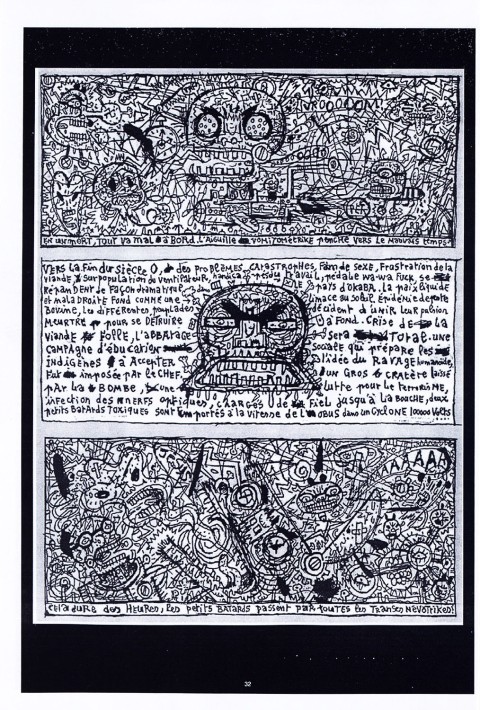 VROOOOOM!
EN UN MORT, TOUT VA MAL à BORD. L'AiGuille VOMiTOMÉTRiKE PENCHE VERS LE MAUVAIS temps!
VERS La Fin du SiÈCLE O, des PROBLÈMES, CATASTROPHES, Faim de SEXE, FRustRation de la
Viande & SurPoPulation de VentiPateur, handica Pesoy travail, Pédale wa-wa Fuck, se
RéPANDENT de FAÇon dramatique dans pays d'OKABA. La Paix liquide
et maladroite FOND COMME UNE limace au Soleil. ÉPidémie de Peste
Bovine, Les diFFÉRentes PeuPlades décident d'uniR LeuR Pulsion
MEURTRE POUR se DÉTRUIRE à FOND. CRiSE de La
Viande FOLLE, L'ABBATAGE Sera TOTAL. une
CAMPAGNE d'éducation Société qui PréPare les
INDIGÈNES à ACCEPTER l'idée du RAVAGE humanide,
Fut imposée PaR Le CHEF. un GROS CRATÈRE laissé
PAR La BOMBE, une lutte Pour le terroRiSME,
inFection des NERFS OPtiques, CHARGés de FieL JusQu'à La BOUCHE, deux
Petits BATARDS TOXiques SONT EmPortés à La Vitesse de L'OBUS dans un CYCLONE 100000 Volts
AAAA
CELA DURE des HEURES, Les Petits BATARDS Passent PAR TOUTES les TRANSES NÉVOTIKES!
32